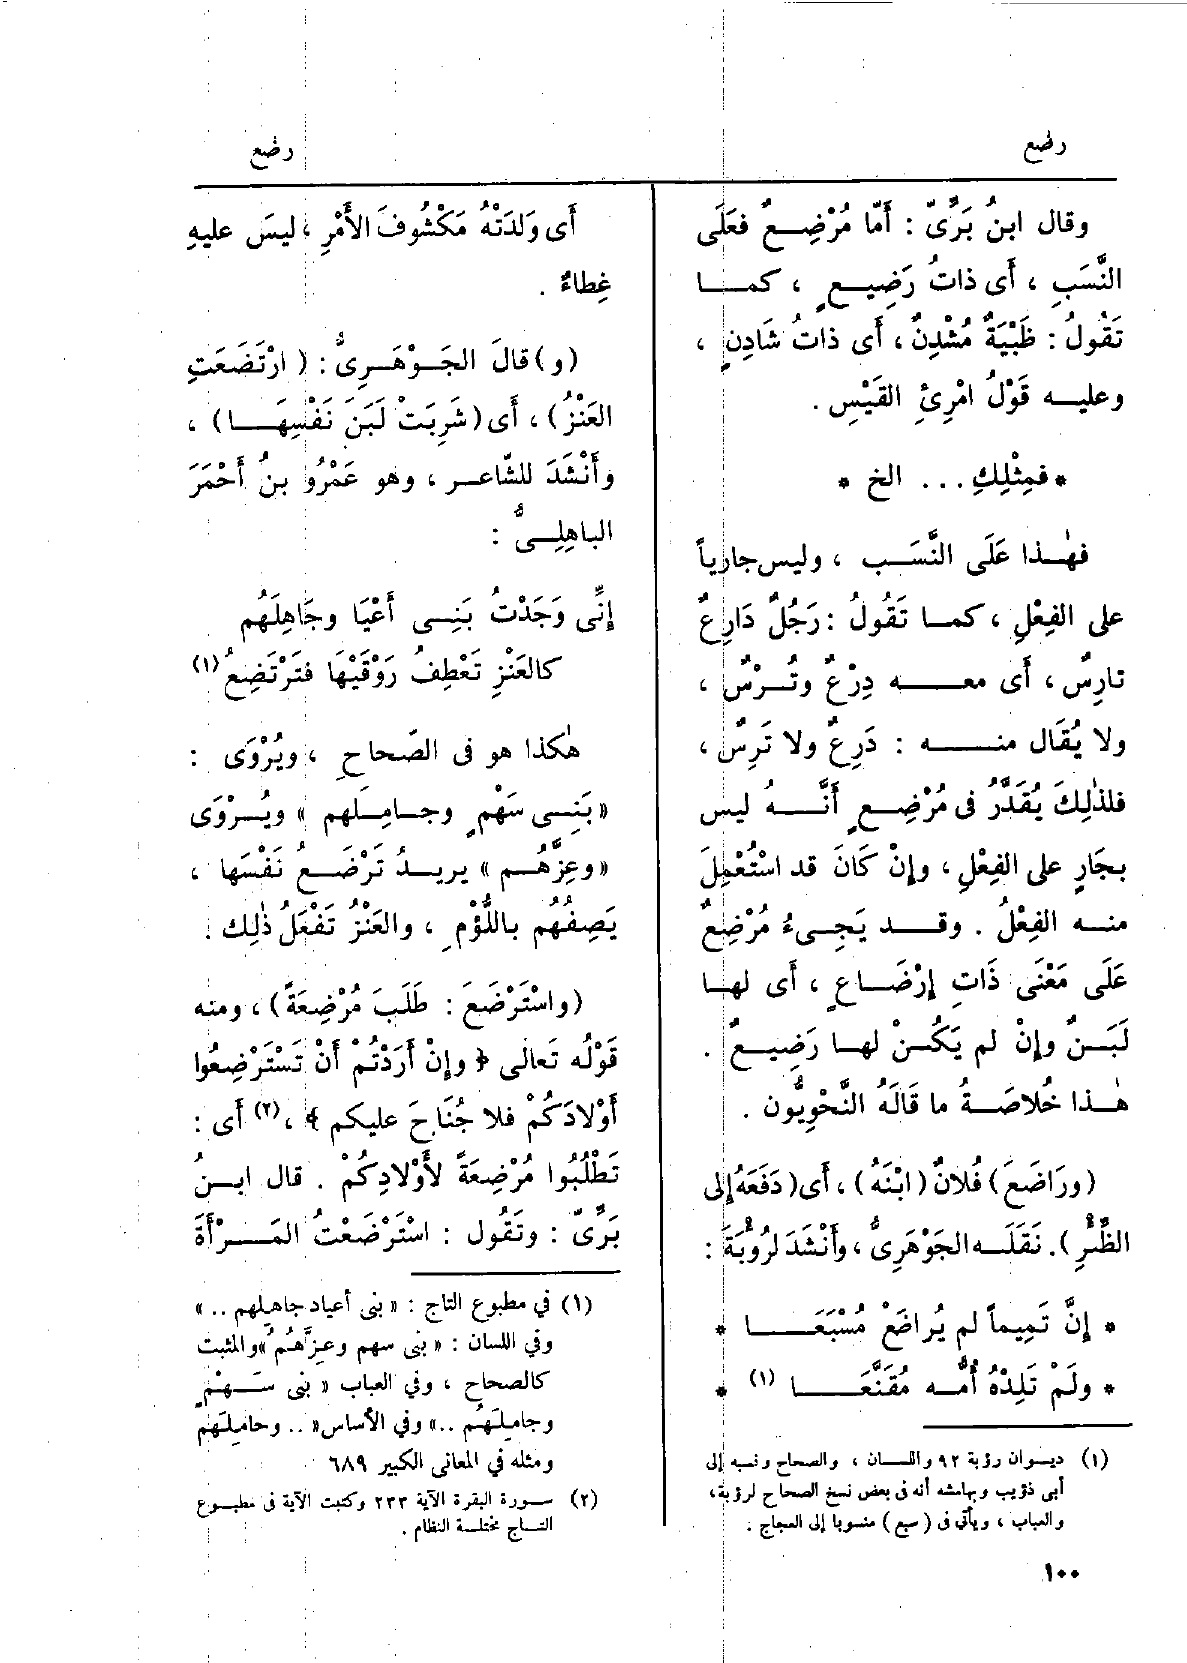 رضع
رضع
وقال ابنُ بَرِّىّ : أَمّا مُرْضِعٌ فعَلَى
النَّسَبِ ، أَى ذاتُ رَضِيعٍ ، كما
تَقُولُ : ظَبْيَةٌ مُشْدِنٌ ، أَى ذاتُ شَادِنٍ ،
وعليه قَوْلُ امْرِئِ القَيْسِ .
* فمِثْلِكِ ... الخ *
فهٰذا عَلَى النَّسَب ، وليس جارِياً
على الفِعْلِ ، كما تَقُولُ : رَجُلٌ دَارِعٌ
تارِسٌ ، أَى معه دِرْعٌ وتُرْسٌ ،
ولا يُقَال منه : دَرِعٌ ولا تَرِسٌ ،
فلذٰلِكَ يُقَدَّرُ فى مُرْضِعٍ أَنَّه ليس
بجَارٍ على الفِعْلِ ، وإِنْ كَانَ قد اسْتُعْمِلَ
منه الفِعْلُ . وقد يَجِىءُ مُرْضِعٌ
عَلَى مَعْنَى ذَاتِ إِرْضَاعٍ ، أَى لها
لَبَنٌ وإِنْ لم يَكُنْ لها رَضِيعٌ .
هٰذا خُلاصَةُ ما قَالَهُ النَّحْوِيُّون .
(ورَاضَعَ) فُلانٌ (ابْنَهُ) ، أَى (دَفَعَهُ إِلى
الظِّئْرِ). نَقَلَه الجَوْهَرِىُّ ، وأَنْشَدَ لرُؤْبَةَ :
* إِنَّ تَمِيماً لم يُرَاضَعْ مُسْبَعَا *
* ولَمْ تَلِدْهُ أُمُّه مُقَنَّعَا (١) *
(١) ديوان رؤبة ٩٢ واللسان ، والصحاح ونسبه إلى
أبى ذؤيب وبهامشه أنه فى بعض نسخ الصحاح لرؤبة،
والعباب ، ويأتى فى (سبع) منسوبا إلى العجاج .
أَى وَلَدَتْهُ مَكْشُوفَ الأَمْرِ ، ليسَ عليهِ
غِطاءٌ .
(و) قالَ الجَوْهَرِىُّ : (ارْتَضَعَتِ
العَنْزُ) ، أَى (شَرِبَتْ لَبَنَ نَفْسِهَا) ،
وأَنْشَدَ للشّاعرِ ، وهو عَمْرُو بنُ أَحْمَرَ
الباهِلِىُّ :
إِنِّى وَجَدْتُ بَنِى أَعْيَا وجَاهِلَهُم
كالعَنْزِ تَعْطِفُ رَوْقَيْهَا فتَرْتَضِعُ (١)
هٰكذا هو فى الصّحاحِ ، ويُرْوَى :
«بَنِى سَهْمٍ وجامِلَهم» ويُرْوَى
«وعِزُّهُم» يريدُ تَرْضَعُ نَفْسَها ،
يَصِفُهُم باللُّؤْمِ ، والعَنْزُ تَفْعَلُ ذٰلِك .
(واسْتَرْضَعَ : طَلَبَ مُرْضِعَةً) ، ومنه
قَوْلُه تَعالَى ﴿ وإِنْ أَرَدْتُمْ أَنْ تَسْتَرْضِعُوا
أَوْلادَكُمْ فلا جُنَاحَ عليكم ﴾ ،(٢) أَى :
تَطْلُبُوا مُرْضِعَةً لأَوْلادِكُمْ . قال ابنُ
بَرِّىّ : وتَقُول : اسْتَرْضَعْتُ المَرْأَةَ
(١) في مطبوع التاج : «بنى أعياد جاهلهم ..»
وفي اللسان : «بنى سهم وعِزُّهُمُ» والمثبت
كالصحاح ، وفي العباب «بنى سَهْمٍ
وجاملَهُم ..» وفي الأساس «.. وحاملَهم
ومثله في المعانى الكبير ٦٨٩
(٢) سورة البقرة الآية ٢٣٣ وكتبت الآية فى مطبوع
التاج مختلة النظام .
١٠٠